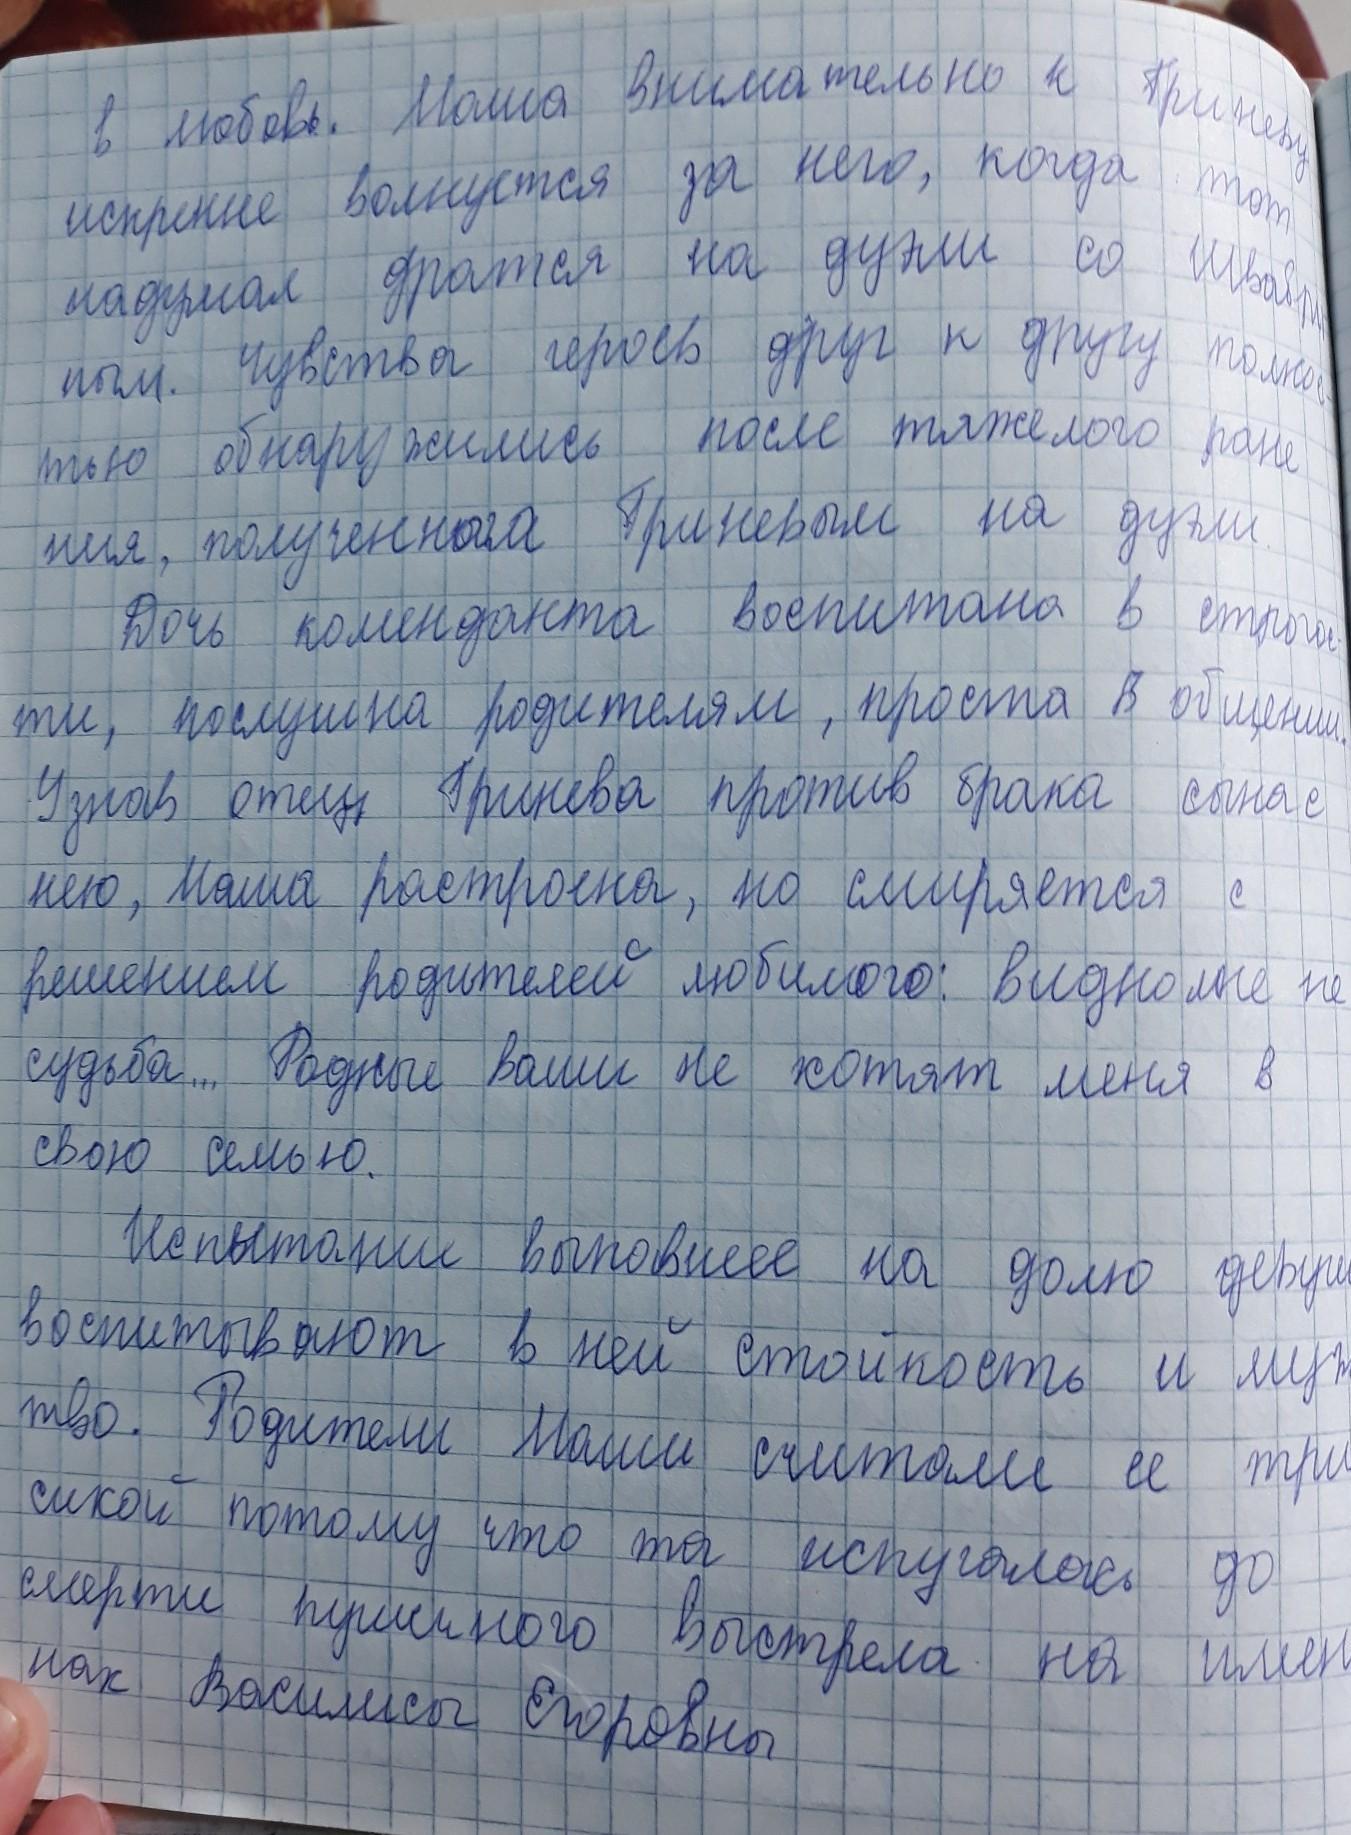 в любовь. Маша внимательно к Гриневу
искренне волнуется за него, когда тот
надумал дратся на дуэли со Швабри
ным. Чувства героев друг к другу полнос-
тью обнаружились после тяжелого ране
ния, полученного Гриневым на дуэли.
Дочь коменданта воспитана в строгос-
ти, послушна родителям, проста в общении.
Узнав отец Гринева против брака сына с
нею, Маша растроена, но смиряется с
решением родителей любимого: видно мне не
судьба... Родные ваши не хотят меня в
свою семью.
Испытании выповшее на долю девуш
воспитывают в ней стойкость и муж
тво. Родители Маши считали ее тру
сихой потому что та испугалась до
смерти пушечного выстрела на имен
нах Василисы Егоровны